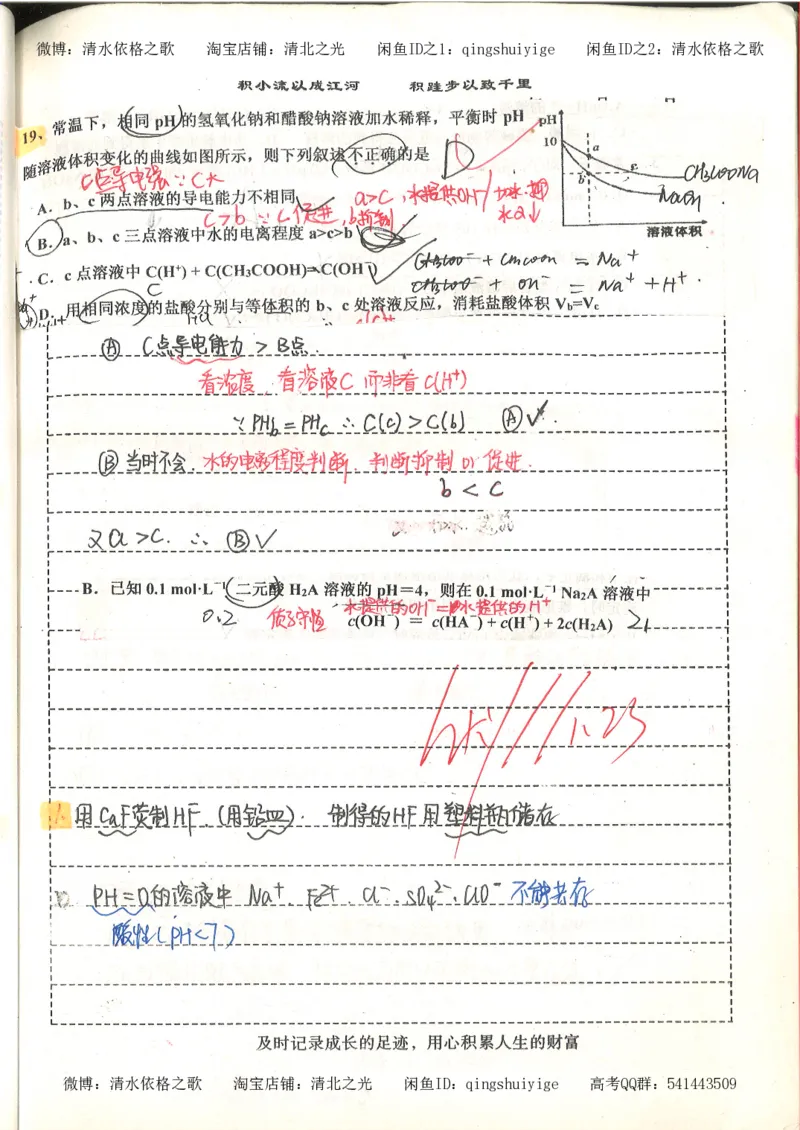 微博：清水依格之歌 淘宝店铺：清北之光 闲鱼ID之1：qingshuiyige 闲鱼ID之2：清水依格之歌
积小流以成江河 积跬步以致千里
19、常温下，相同 pH 的氢氧化钠和醋酸钠溶液加水稀释，平衡时 pH
随溶液体积变化的曲线如图所示，则下列叙述不正确的是 D
pH
10
a
b
c
CH3COONa
NaOH
溶液体积
c点导电强
A．b、c 两点溶液的导电能力不相同
a>c，水提供OH⁻
c>b ∵ c促进，b抑制
B．a、b、c 三点溶液中水的电离程度 a>c>b
C．c 点溶液中 C(H⁺) + C(CH₃COOH)=C(OH⁻)
D．用相同浓度的盐酸分别与等体积的 b、c 处溶液反应，消耗盐酸体积 Vb=Vc
Ⓐ C点导电能力 > B点.
看浓度，看溶液C 而非看c(H⁺)
∵ PHb = PHc ∴ C(c) > C(b) Ⓐ✓.
Ⓑ 当时不会. 水的电离程度判断，判断抑制or促进.
b < c
又a>c. ∴ Ⓑ✓
B．已知 0.1 mol·L⁻¹ 二元酸 H₂A 溶液的 pH＝4，则在 0.1 mol·L⁻¹ Na₂A 溶液中
水提供的OH⁻=水提供的H⁺
0.2 质子守恒 c(OH⁻) = c(HA⁻) + c(H⁺) + 2c(H₂A)
1.23
用CaF荧制HF.(用铅皿). 制得的HF用塑料瓶储存
D PH=0的溶液中 Na⁺. Fe²⁺. Cl⁻. SO₄²⁻. ClO⁻ 不能共存
酸性(PH<7)
及时记录成长的足迹，用心积累人生的财富
微博：清水依格之歌 淘宝店铺：清北之光 闲鱼ID：qingshuiyige 高考QQ群：541443509